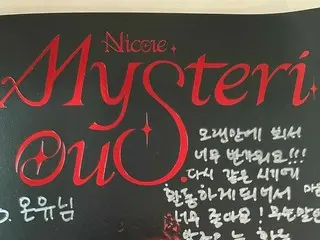 Nicole.
Mysteri
ous
오랜만에 봐서
너무 반가워요!!!
다시 같은 시기에
활동하게 되어서
너무 좋아요!
온유님